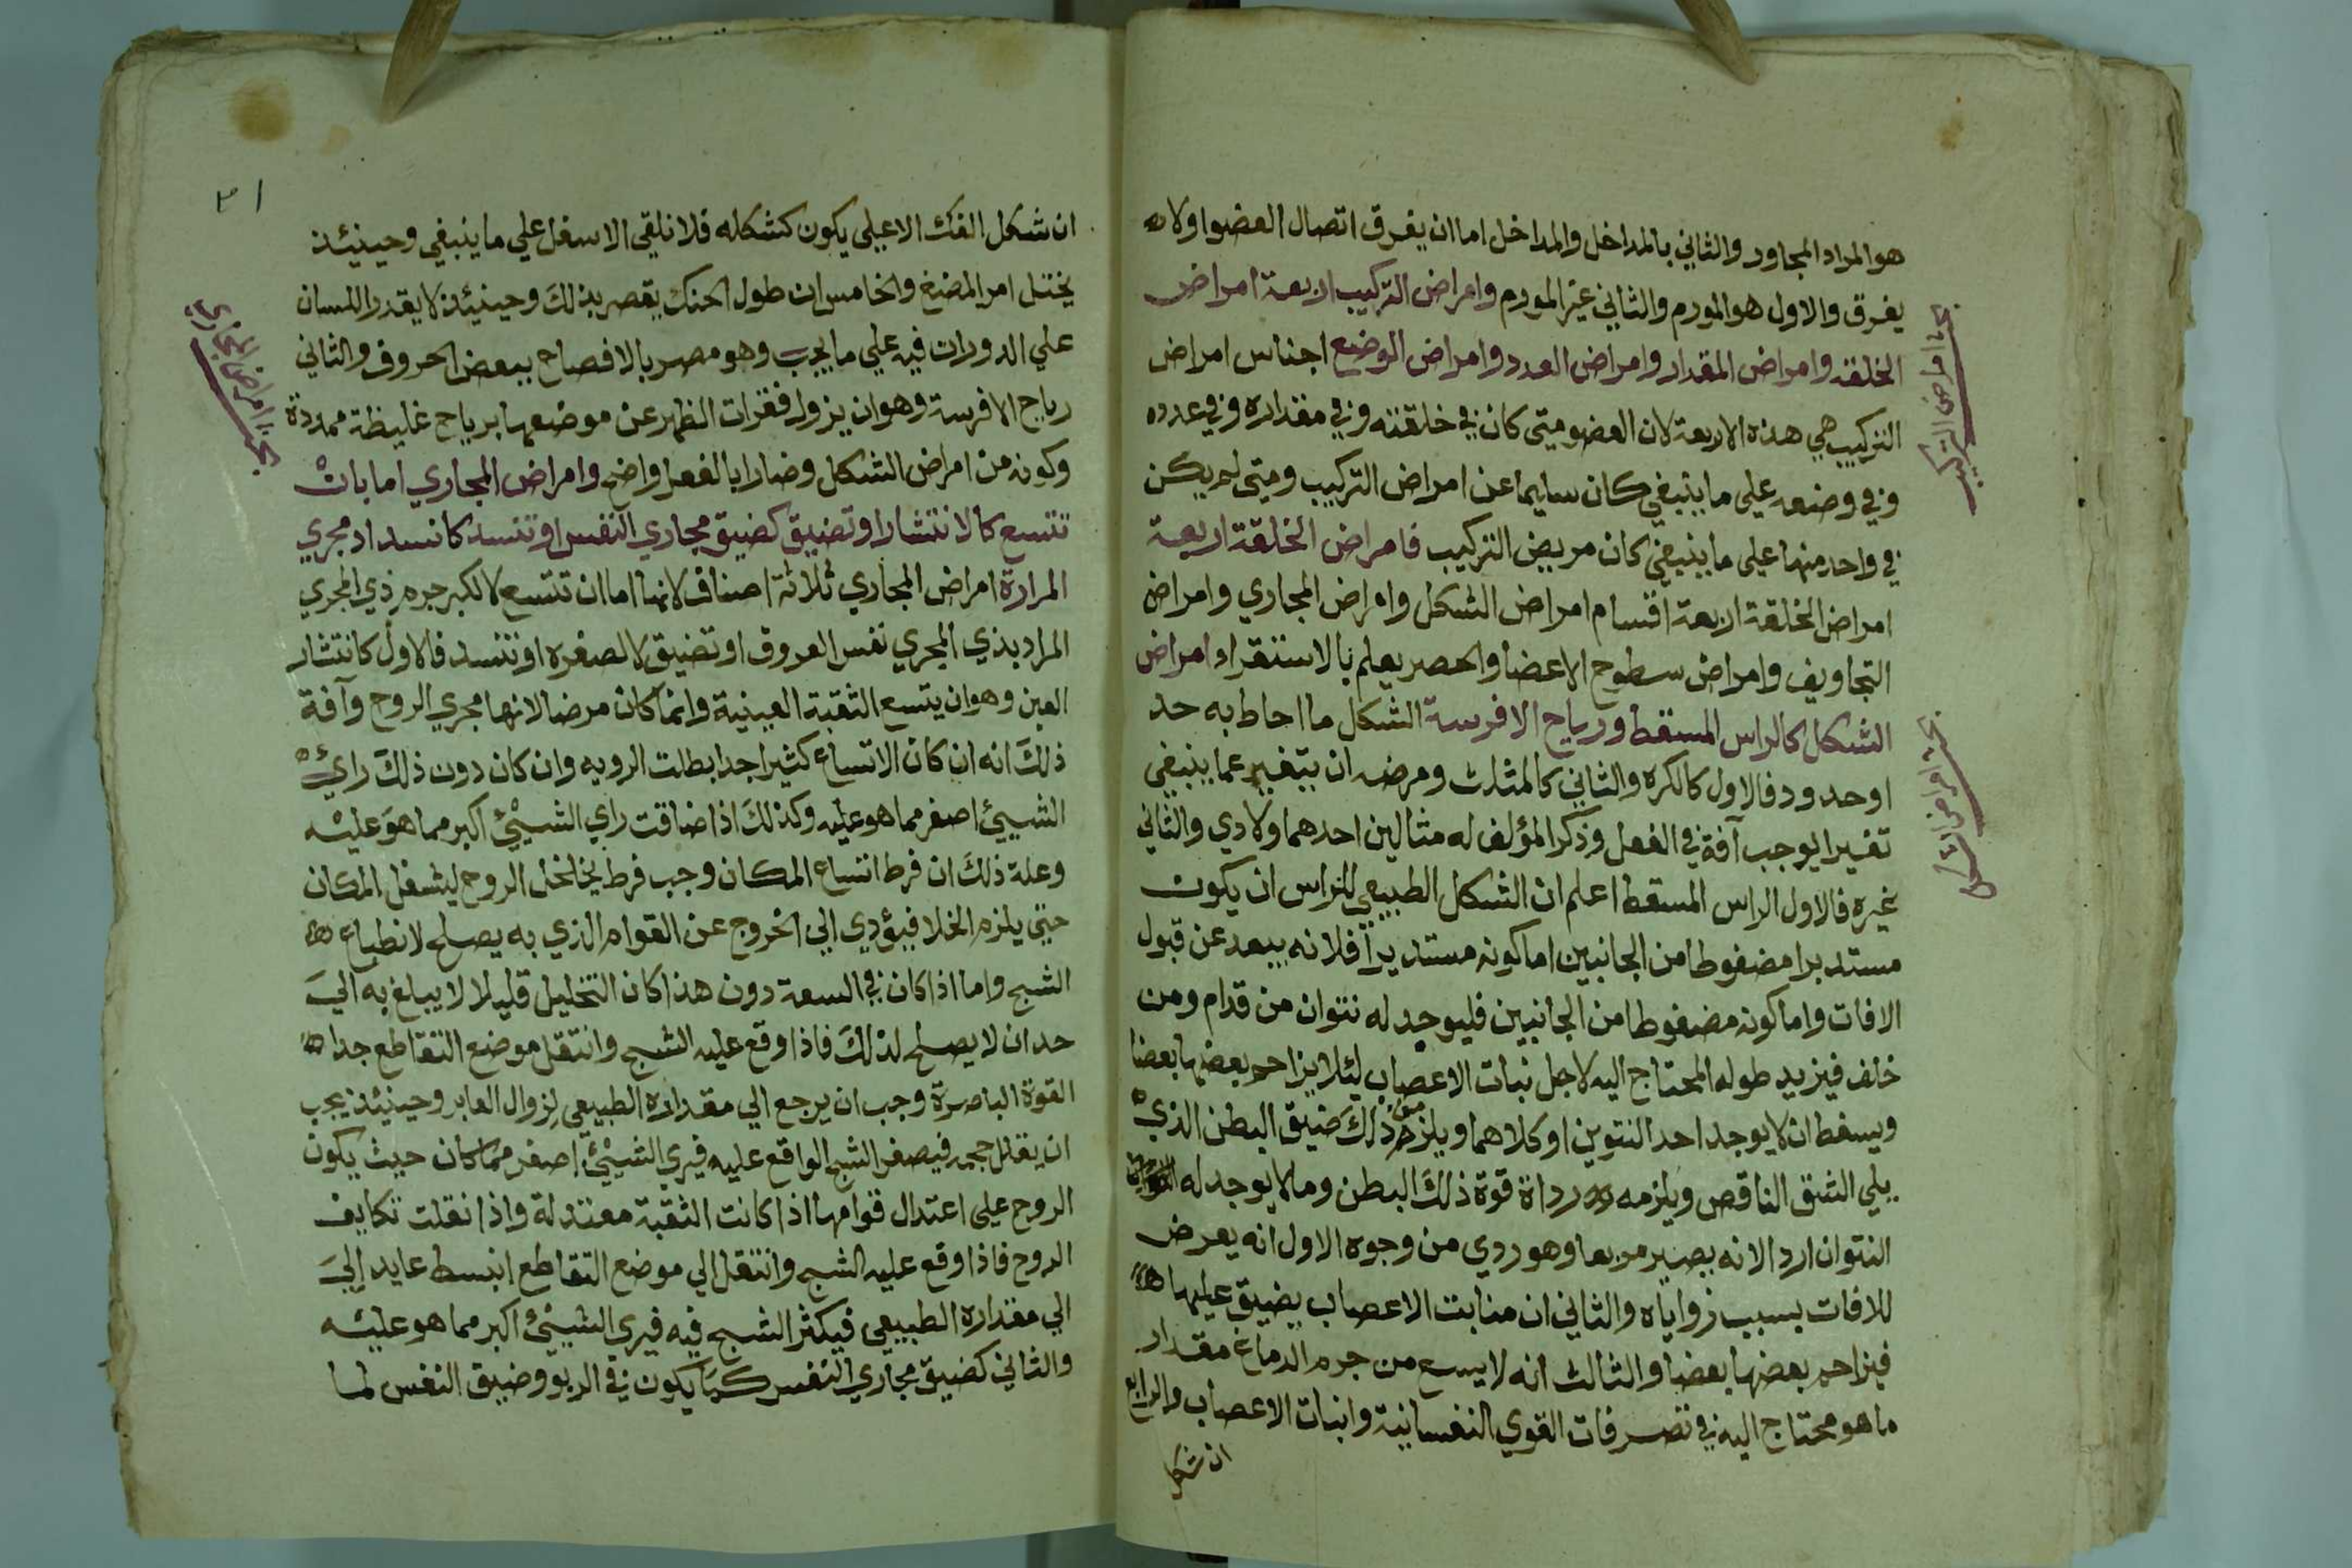 هو المراد المجاور والثاني بالمداخل والمداخل اما ان يفرق اتصال العضو اولا
يفرق والاول هو المورم والثاني غير المورم وامراض التركيب اربعة امراض
الخلقة وامراض المقدار وامراض العدد وامراض الوضع اجناس امراض
التركيب هي هذه الاربعة لان العضو متى كان في خلقته وفي مقداره وفي عدده
وفي وضعه على ما ينبغي كان سليما عن امراض التركيب ومتى لم يكن
في واحد منها على ما ينبغي كان مريض التركيب فامراض الخلقة اربعة
امراض الخلقة اربعة اقسام امراض الشكل وامراض المجاري وامراض
التجاويف وامراض سطوح الاعضا والحصر يعلم بالاستقراء وامراض
الشكل كالراس المسقط ورياح الافرسة الشكل ما احاط به حد
او حدود فالاول كالكره والثاني كالمثلث ومرضه ان يتغير عما ينبغي
تغيرا يوجب آفة في الفعل وذكر المؤلف له مثالين احدهما ولادي والثاني
غيره فالاول الراس المسقط اعلم ان الشكل الطبيعي للراس ان يكون
مستديرا مضغوطا من الجانبين اما كونه مستديرا فلانه يبعد عن قبول
الافات واما كونه مضغوطا من الجانبين فليوجد له نتوان من قدام ومن
خلف فيزيد طوله المحتاج اليه لاجل نبات الاعصاب لئلا يزاحم بعضها بعضا
ويسفط ان لا يوجد احد النتوين او كلاهما ويلزم من ذلك ضيق البطن الذي
يلي الشق الناقص ويلزمه رداة قوة ذلك البطن وما لا يوجد له
النتوان اردا لانه يصير مربعا وهو ردي من وجوه الاول انه يعرض
للافات بسبب زواياه والثاني ان منابت الاعصاب يضيق عليها
فيزاحم بعضها بعضا والثالث انه لا يسع من جرم الدماغ مقدار
ما هو محتاج اليه في تصرفات القوي النفسانية وانبات الاعصاب والرابع
ان شكل
امراض التركيب
امراض الشكل
٣١
ان شكل الفك الاعلي يكون كشكله فلا نلقي الاسفل علي ما ينبغي وحينئذ
يختل امر المضغ والخامس ان طول الحنك يقصر بذلك وحينئذ لا يقدر اللسان
علي الدورات فيه علي ما يجب وهو مصر بالافصاح ببعض الحروف والثاني
رياح الافرسة وهو ان يزول فقرات الظهر عن موضعها برياح غليظة ممددة
وكونه من امراض الشكل وضارا بالفعل واضح وامراض المجاري اما بان
تتسع كالانتشار او تضيق كضيق مجاري النفس او تنسد كانسداد مجري
المرارة امراض المجاري ثلاثة اصناف لانها اما ان تتسع لا لكبر جرم ذي المجري
المراد بذي المجري نفس العروق او تضيق لا لصغره او تنسد فالاول كانتشار
العين وهو ان يتسع الثقبة العينية وانما كان مرضا لانها مجري الروح وآفة
ذلك انه ان كان الاتساع كثيرا جدا بطلت الرويه وان كان دون ذلك راي
الشيئ اصغر مما هو عليه وكذلك اذا ضاقت راي الشيئ اكبر مما هو عليه
وعلة ذلك ان فرط اتساع المكان وجب فرط يخلخل الروح ليشغل المكان
حتي يلزم الخلا فيؤدي الي الخروج عن القوام الذي به يصلح لانطباع
الشبح واما اذا كان في السعة دون هذا كان التخليل قليلا لا يبلغ به الي
حد ان لا يصلح لذلك فاذا وقع عليه الشبح وانتقل موضع التقاطع جدا
القوة الباصرة وجب ان يرجع الي مقداره الطبيعي لزوال العابر وحينئذ يجب
ان يقلل حجمه فيصغر الشبح الواقع عليه فيري الشيئ اصغر مما كان حيث يكون
الروح علي اعتدال قوامها اذا كانت الثقبة معتدلة واذا نقلت تكاثف
الروح فاذا وقع عليه الشبح وانتقل الي موضع التقاطع انبسط عايد الي
الي مقداره الطبيعي فيكثر الشبح فيه فيري الشيئ اكبر مما هو عليه
والثاني كضيق مجاري النفس كما يكون في الربو وضيق النفس لما
امراض المجاري